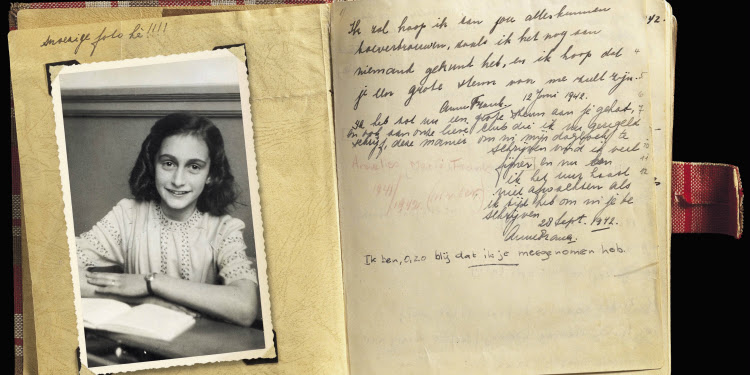 snoezige foto hè!!!!
42.
Ik zal hoop ik aan jou alles kunnen
toevertrouwen, zoals ik het nog aan
niemand gekund heb, en ik hoop dat
je een grote steun van me zult zijn.
Anne Frank. 12 Juni 1942.
Ik heb tot nu een grote steun aan je gehad,
en ook aan onze lieve club die ik nu geregeld
schrijf, deze manier om in mijn dagboek te
schrijven vind ik veel
fijner en nu kan
ik het uur haast
niet afwachten als
ik tijd heb om in je te
schrijven
28 Sept. 1942.
Anne Frank.
Annelies Marie Frank
1942
Ik ben, O, zo blij dat ik je meegenomen heb.